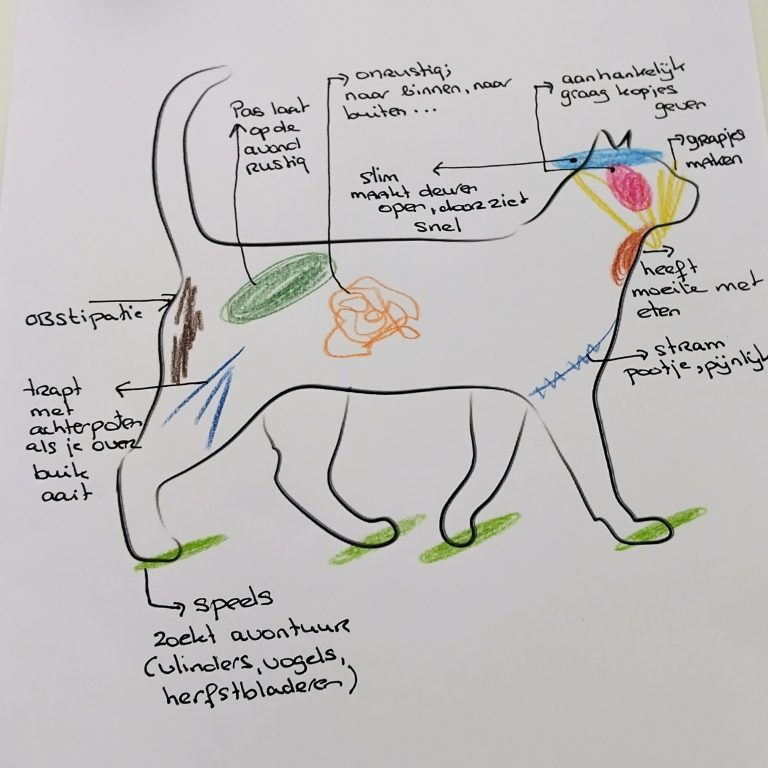 Pas laat
op de
avond
rustig
onrustig;
naar binnen, naar
buiten ...
aanhankelijk
graag kopjes
geven
grapjes
maken
slim
maakt deuren
open, doorziet
snel
heeft
moeite met
eten
stram
pootje, pijnlijk
obstipatie
trapt
met
achterpoten
als je over
buik
aait
speels
zoekt avontuur
(vlinders, vogels,
herfstbladeren)